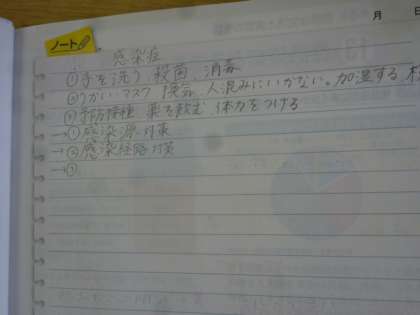 月 日
ノート
感染症
①手を洗う 殺菌 消毒
②うがい マスク 換気 人混みにいかない。加湿する
③予防接種 薬を飲む 体力をつける
→①感染源対策
→②感染経路対策
→③